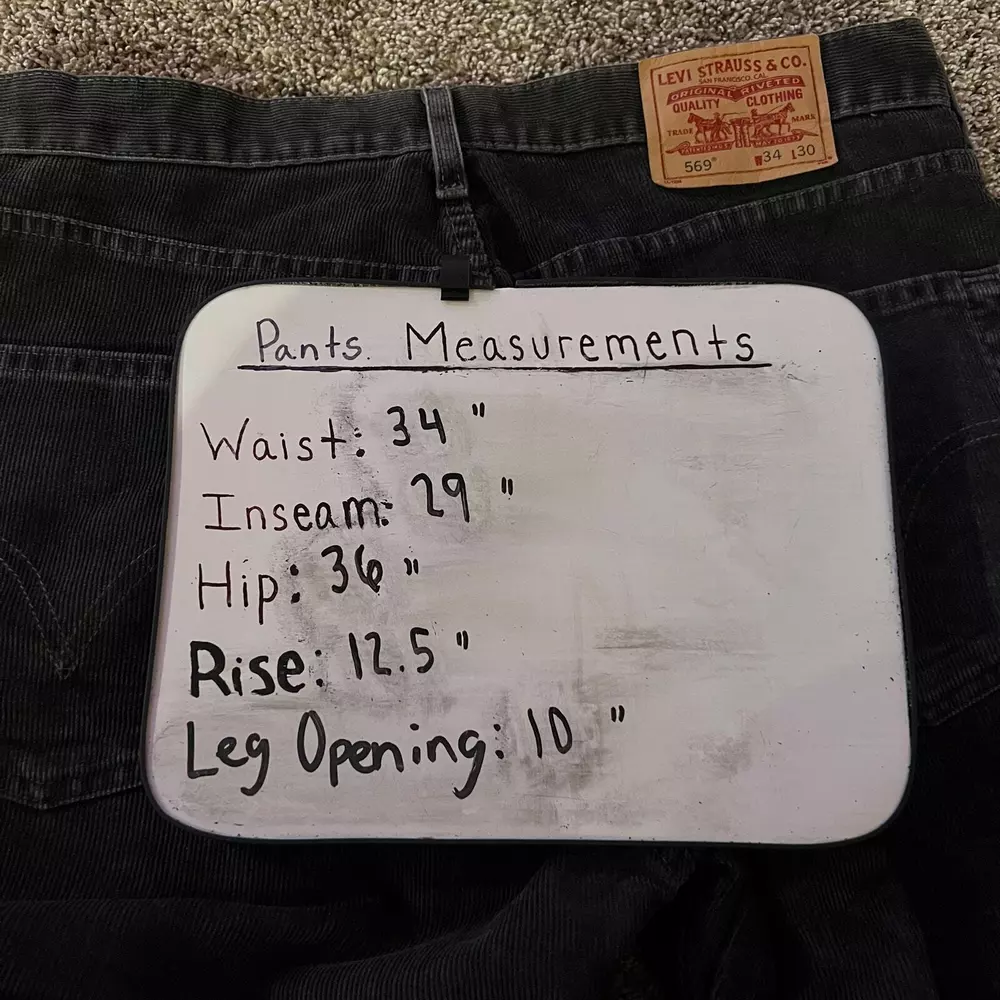 LEVI STRAUSS & CO.
SAN FRANCISCO, CAL.
ORIGINAL RIVETED
QUALITY CLOTHING
TRADE MARK
569® W34 L30
Pants Measurements
Waist: 34"
Inseam: 29"
Hip: 36"
Rise: 12.5"
Leg Opening: 10"